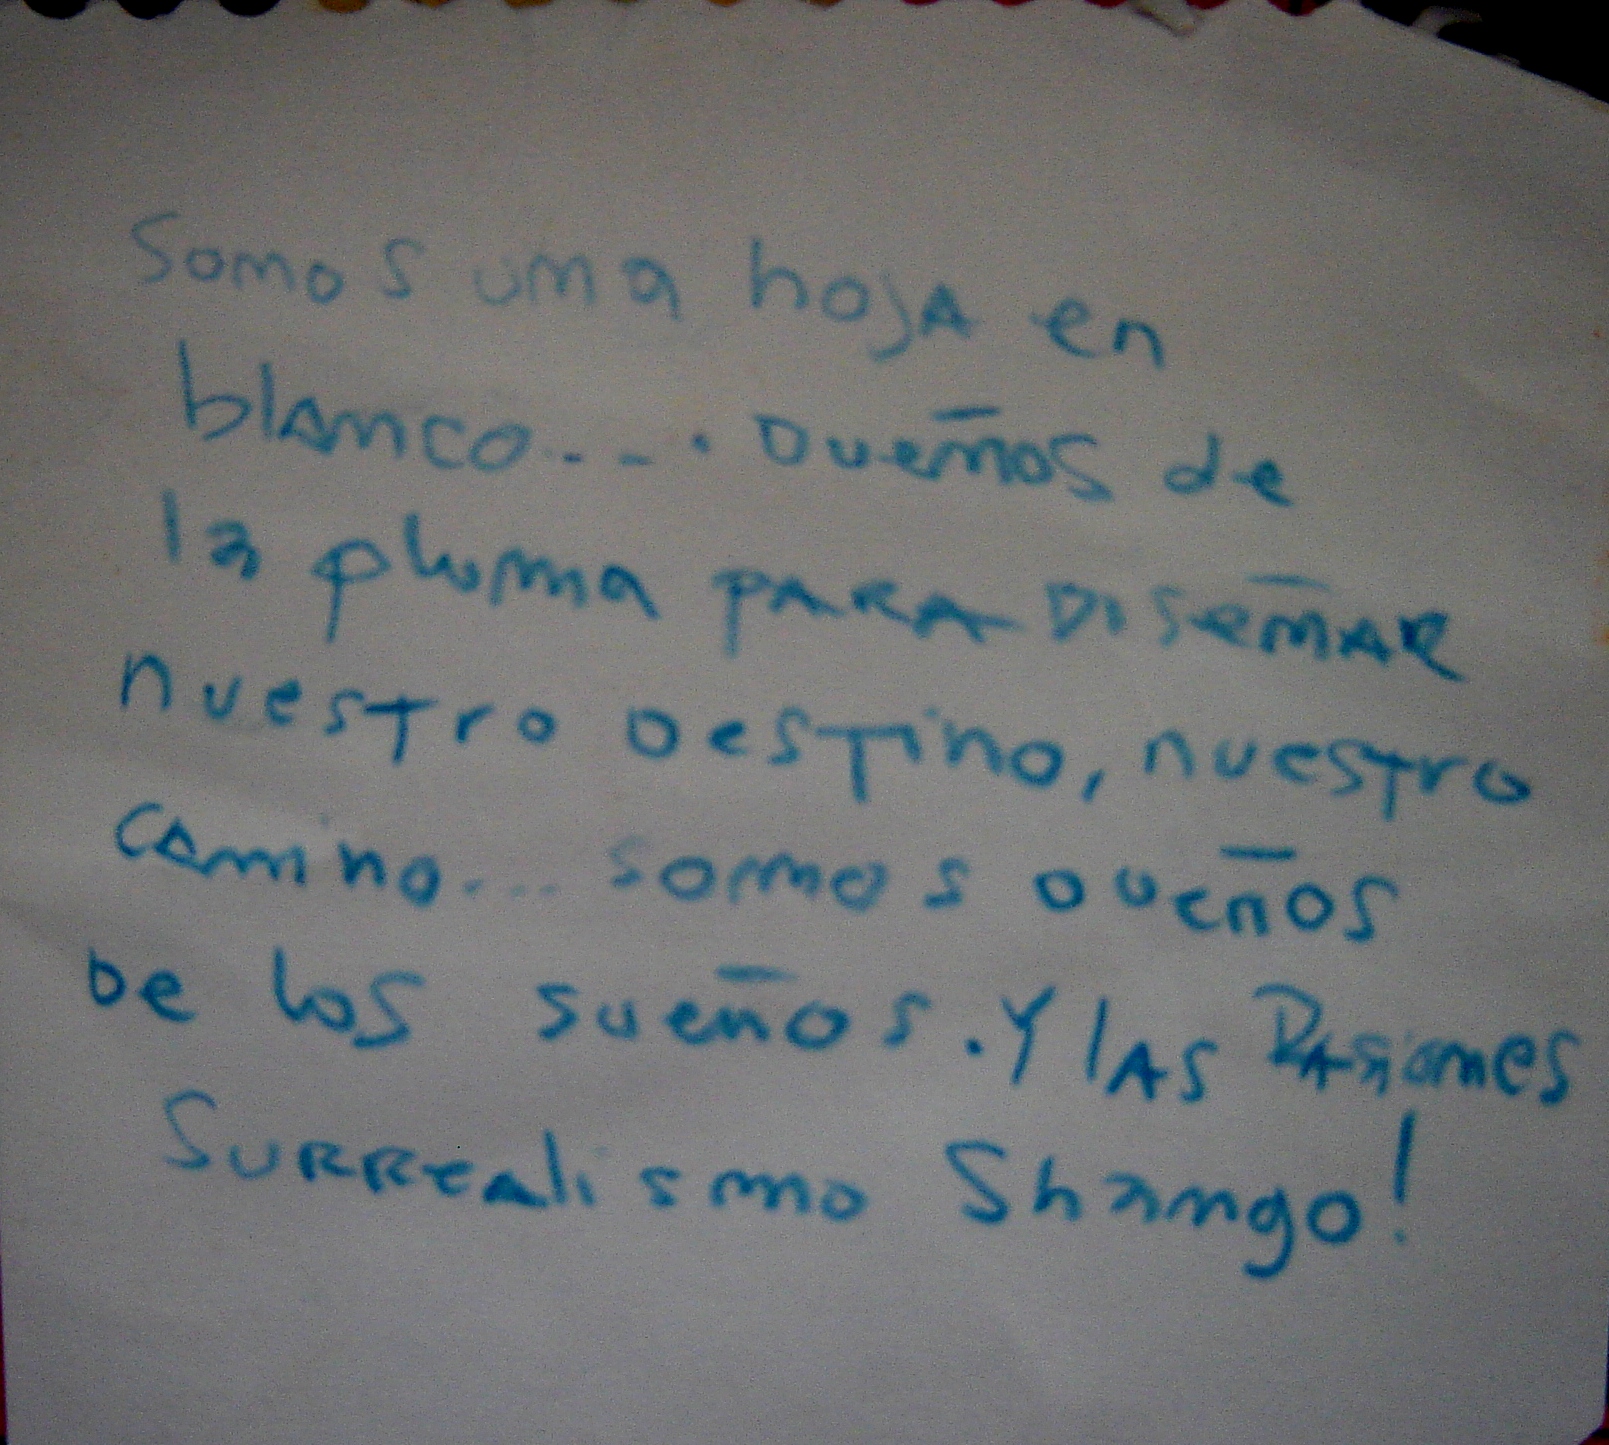 Somos una hoja en
blanco.... Dueños de
la pluma PARA DiSeñAR
nuestro DesTino, nuestro
camino.... somos Dueños
De los sueños. Y lAS PAsiones
SuRRealismo Shango!